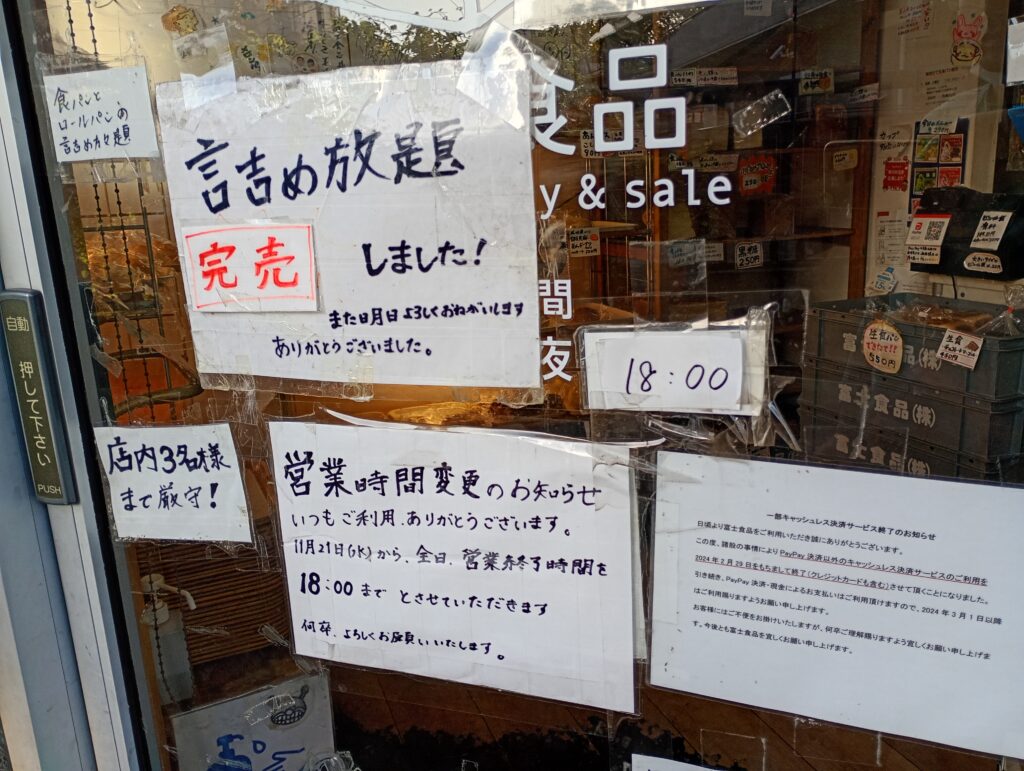 食パンと
ロールパンの
詰め放題
詰め放題
完売
しました!
また日月日よろしくおねがいします
ありがとうございました。
食品
y & sale
間
夜
18:00
自動
押して下さい
PUSH
店内3名様
まで厳守!
営業時間変更のお知らせ
いつもご利用、ありがとうございます。
11月21日(火)から、全日、営業終了時間を
18:00まで とさせていただきます
何卒、よろしくお願いいたします。
一部キャッシュレス決済サービス終了のお知らせ
日頃より富士食品をご利用いただき誠にありがとうございます。
この度、諸般の事情によりPayPay 決済以外のキャッシュレス決済サービスのご利用を
2024年2月29日をもちまして終了(クレジットカードも含む)させて頂くことになりました。
引き続き、PayPay 決済・現金によるお支払いはご利用頂けますので、2024年3月1日以降
はご利用賜りますようお願い申し上げます。
お客様にはご不便をお掛けいたしますが、何卒ご理解賜りますよう宜しくお願い申し上げま
す。今後とも富士食品を宜しくお願い申し上げます。
生食パン
できたて!!
550円
生食
450円
富士食品(株)
富士食品(株)
富士食品(株)
黒糖
250円
カップ